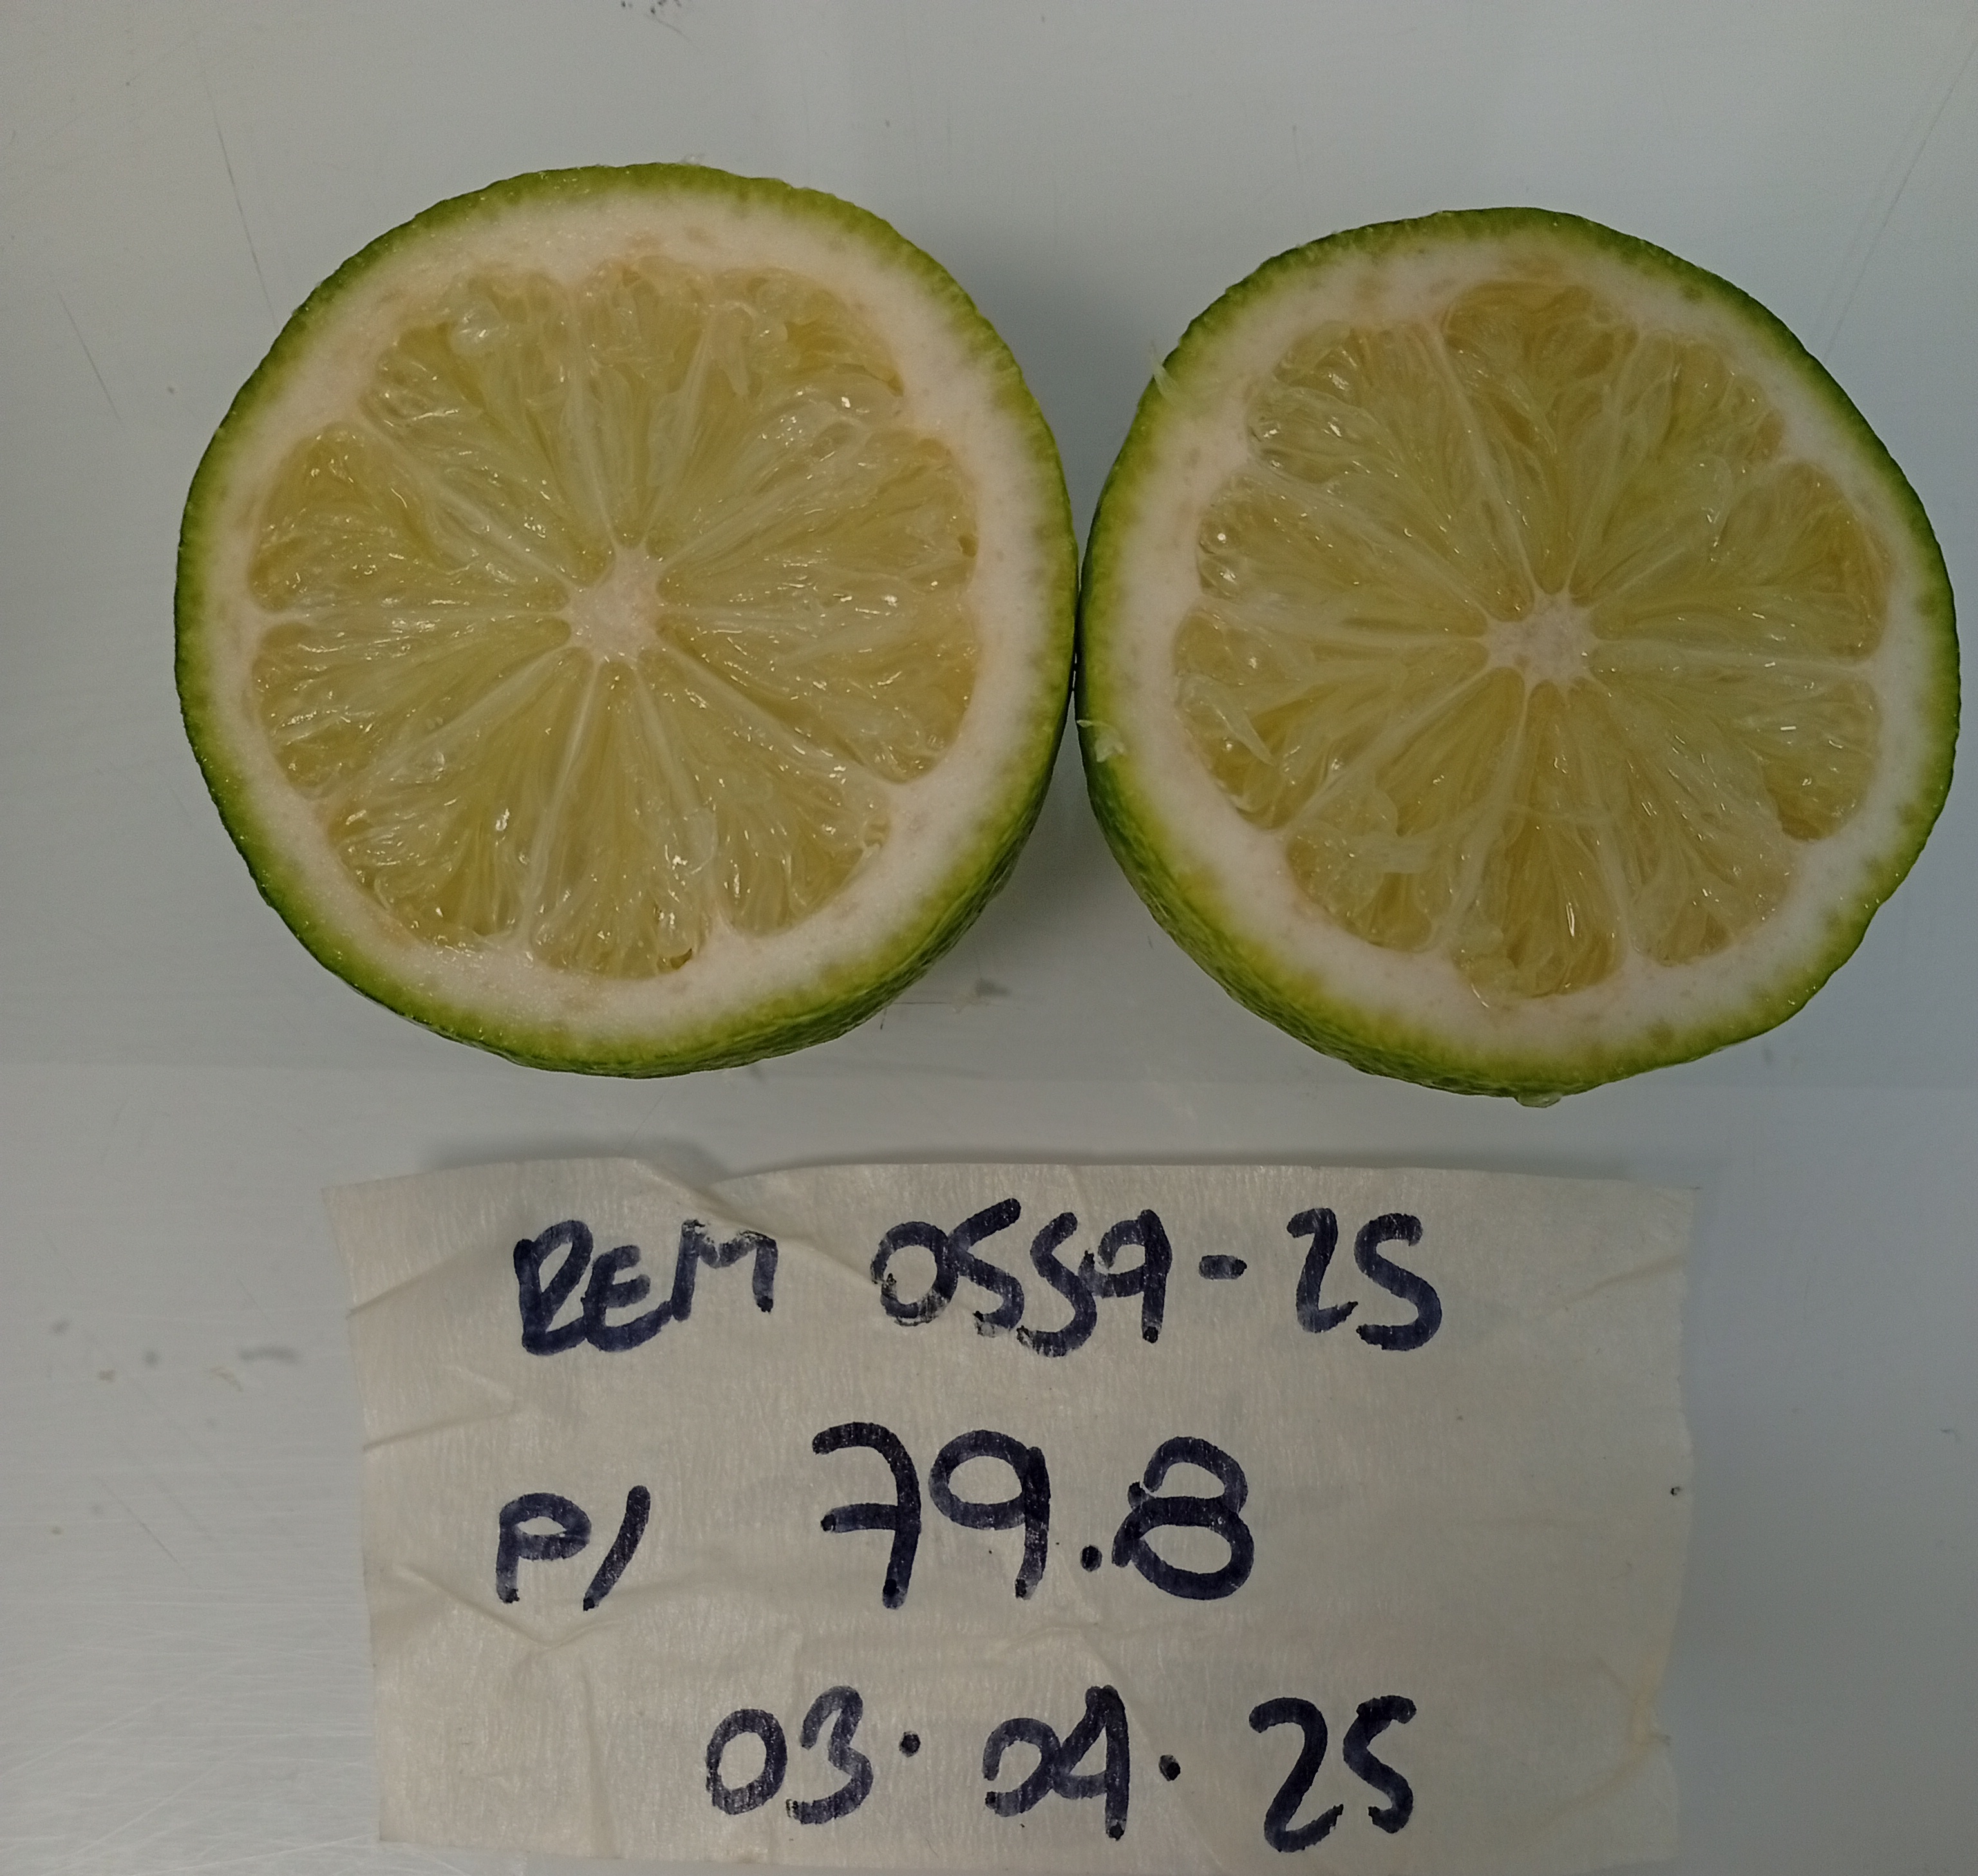 REM 0559-25
P/ 79.8
03.04.25